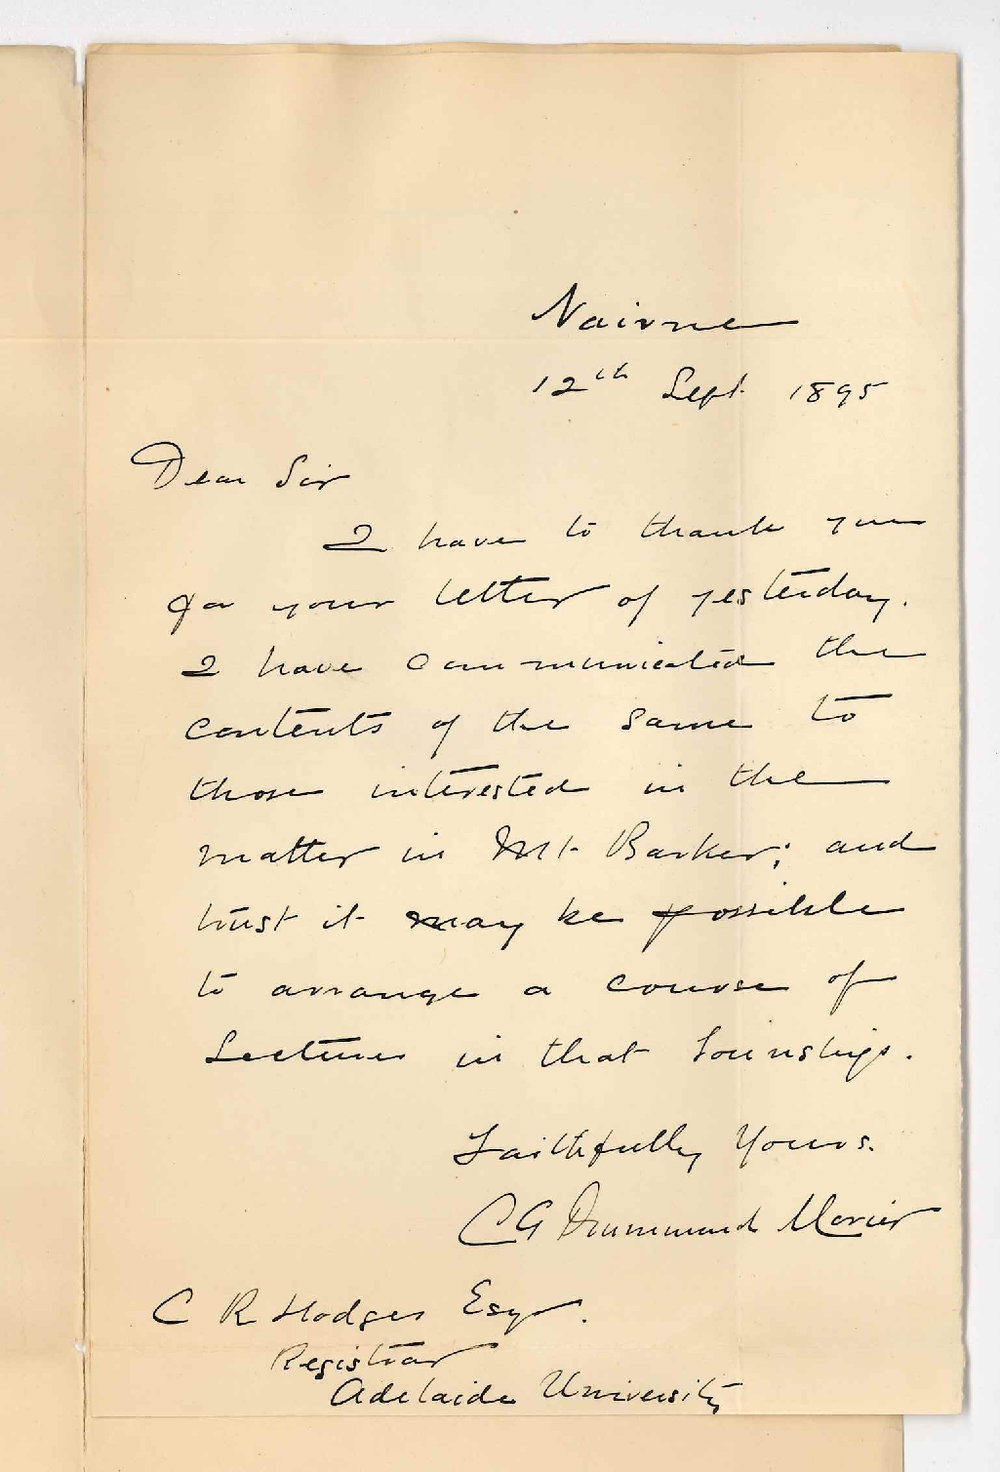 Nairne
12th Sept. 1895
Dear Sir
I have to thank you
for your letter of yesterday.
I have communicated the
contents of the same to
those interested in the
matter in Mt Barker; and
trust it may be possible
to arrange a course of
Lectures in that Township.
Faithfully Yours.
C G Drummond Morier
C R Hodges Esqr.
Registrar
Adelaide University